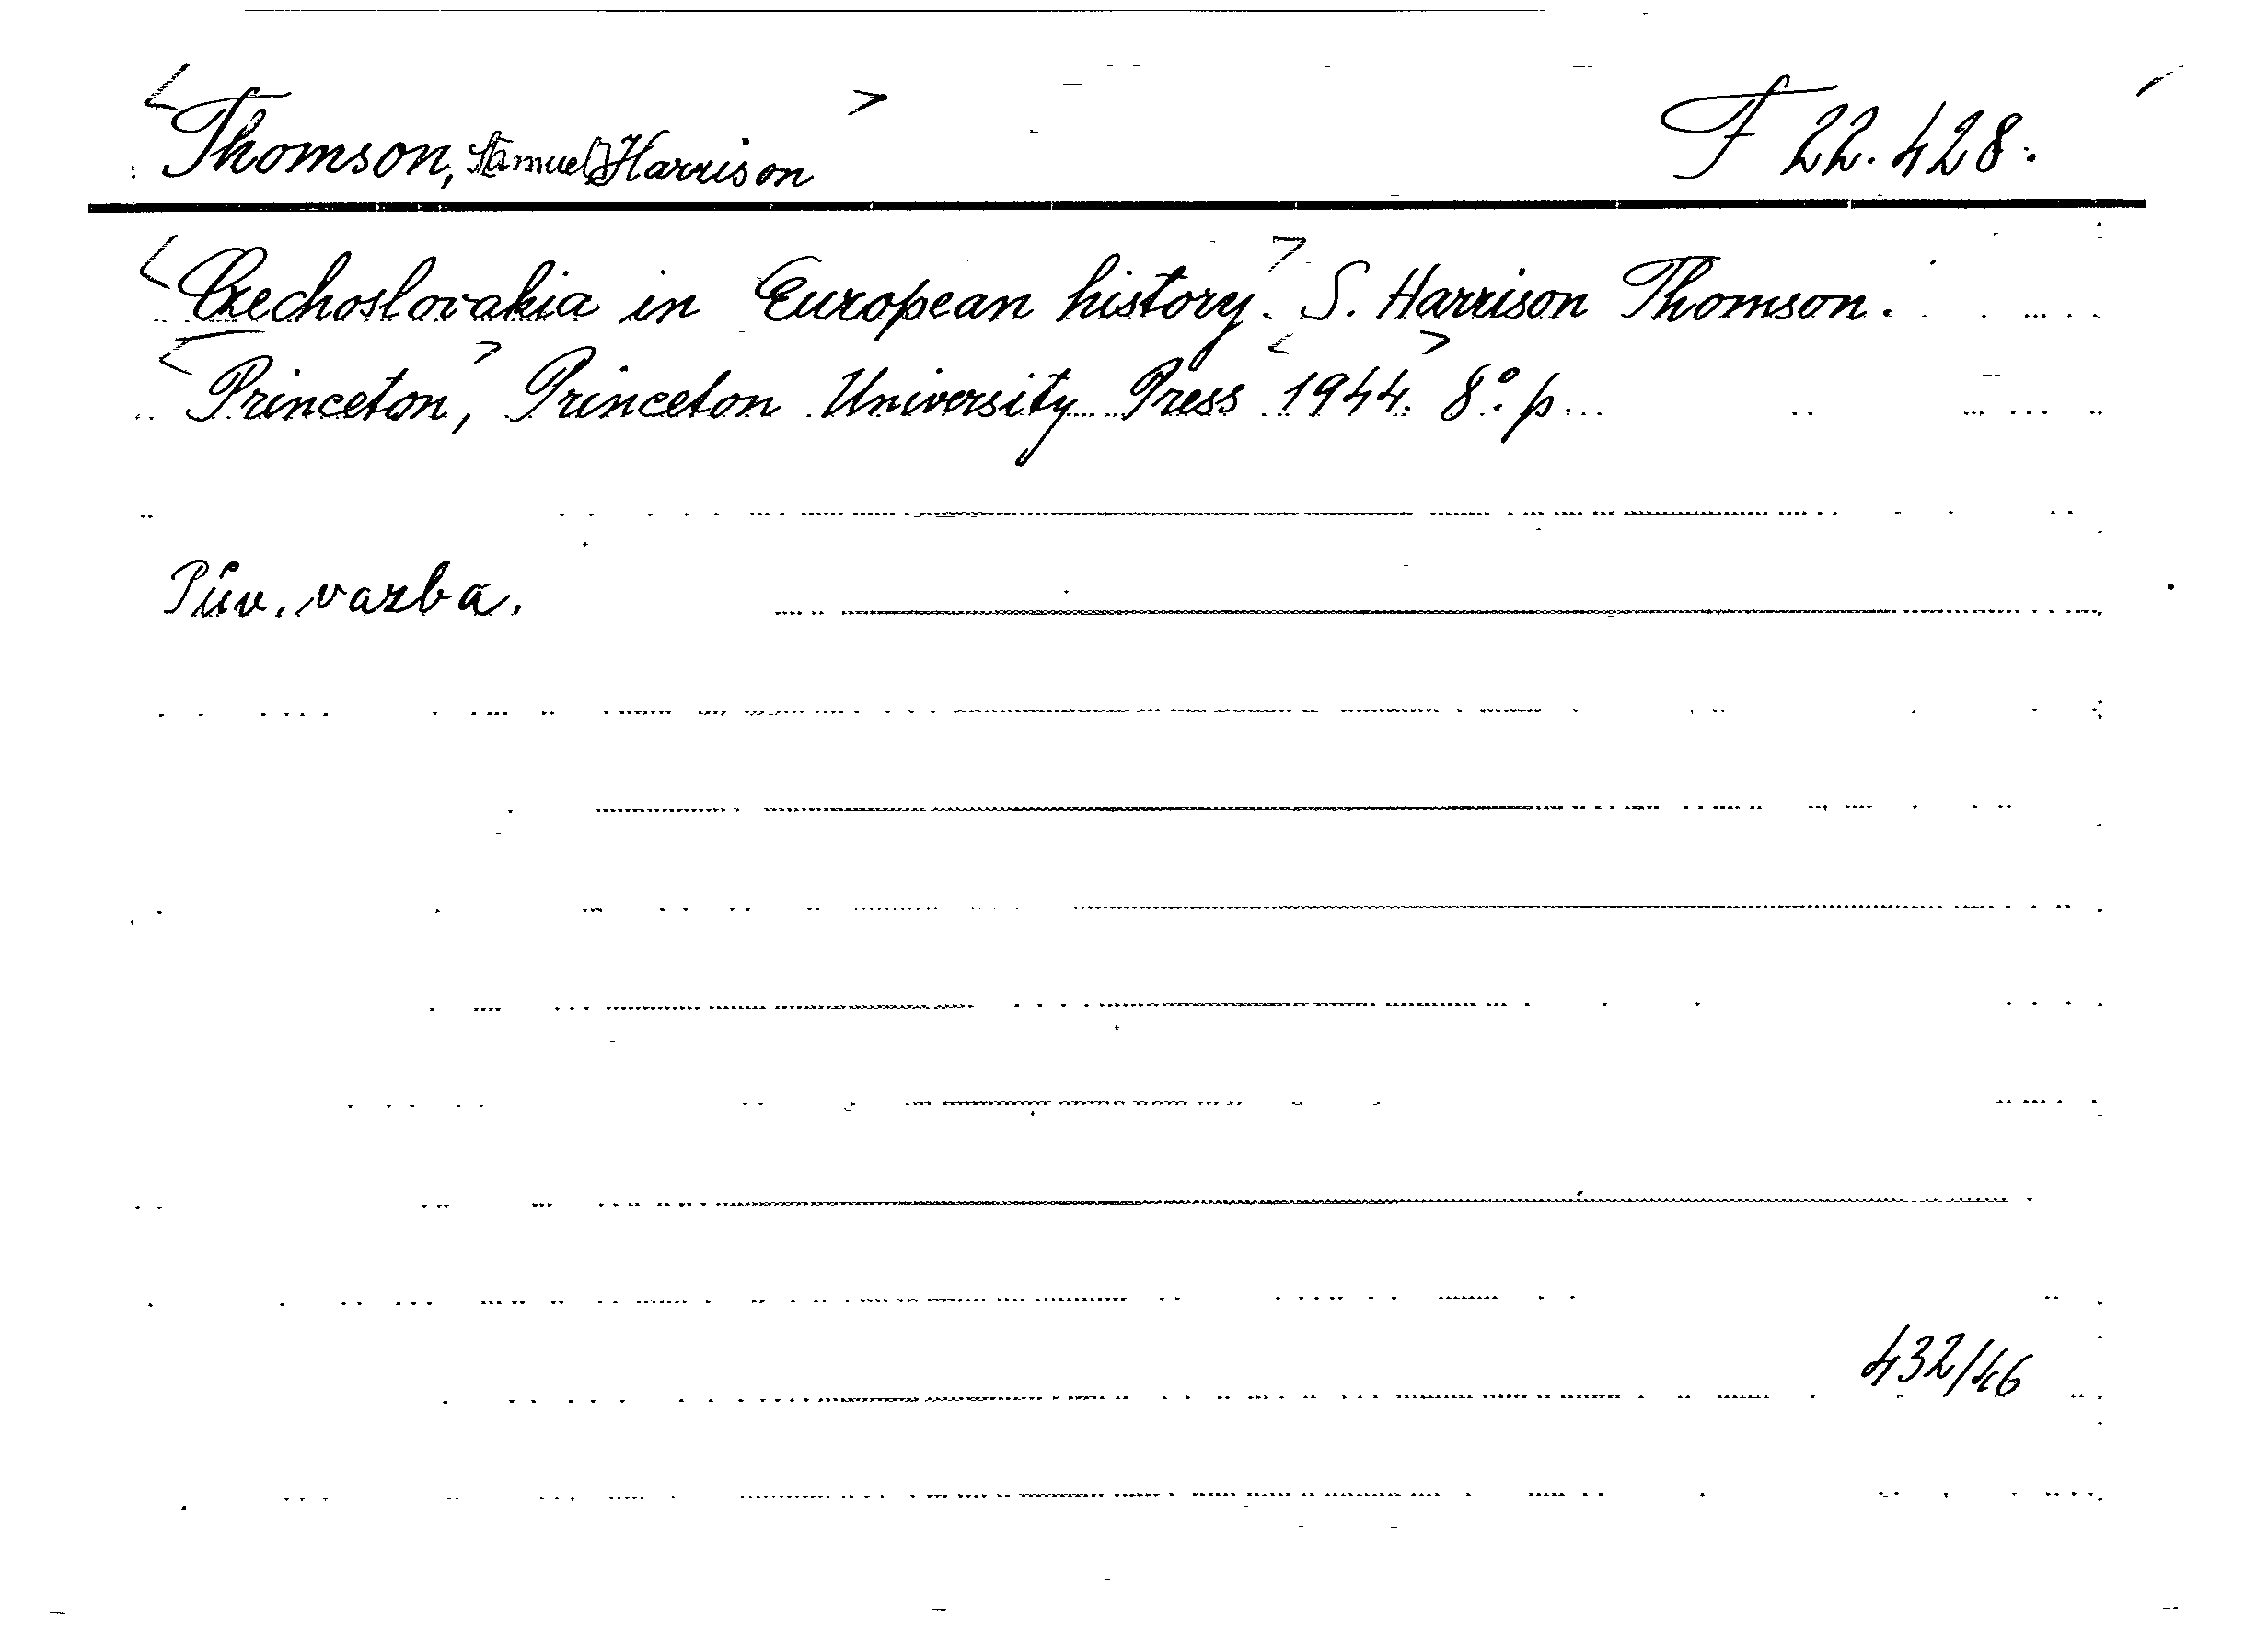 <Thomson, Samuel Harrison> F 22.428.
<Czechoslovakia in European history.> S. Harrison Thomson.
<Princeton,> Princeton University Press <1944.> 8°. p.
Pův. vazba.
432/46